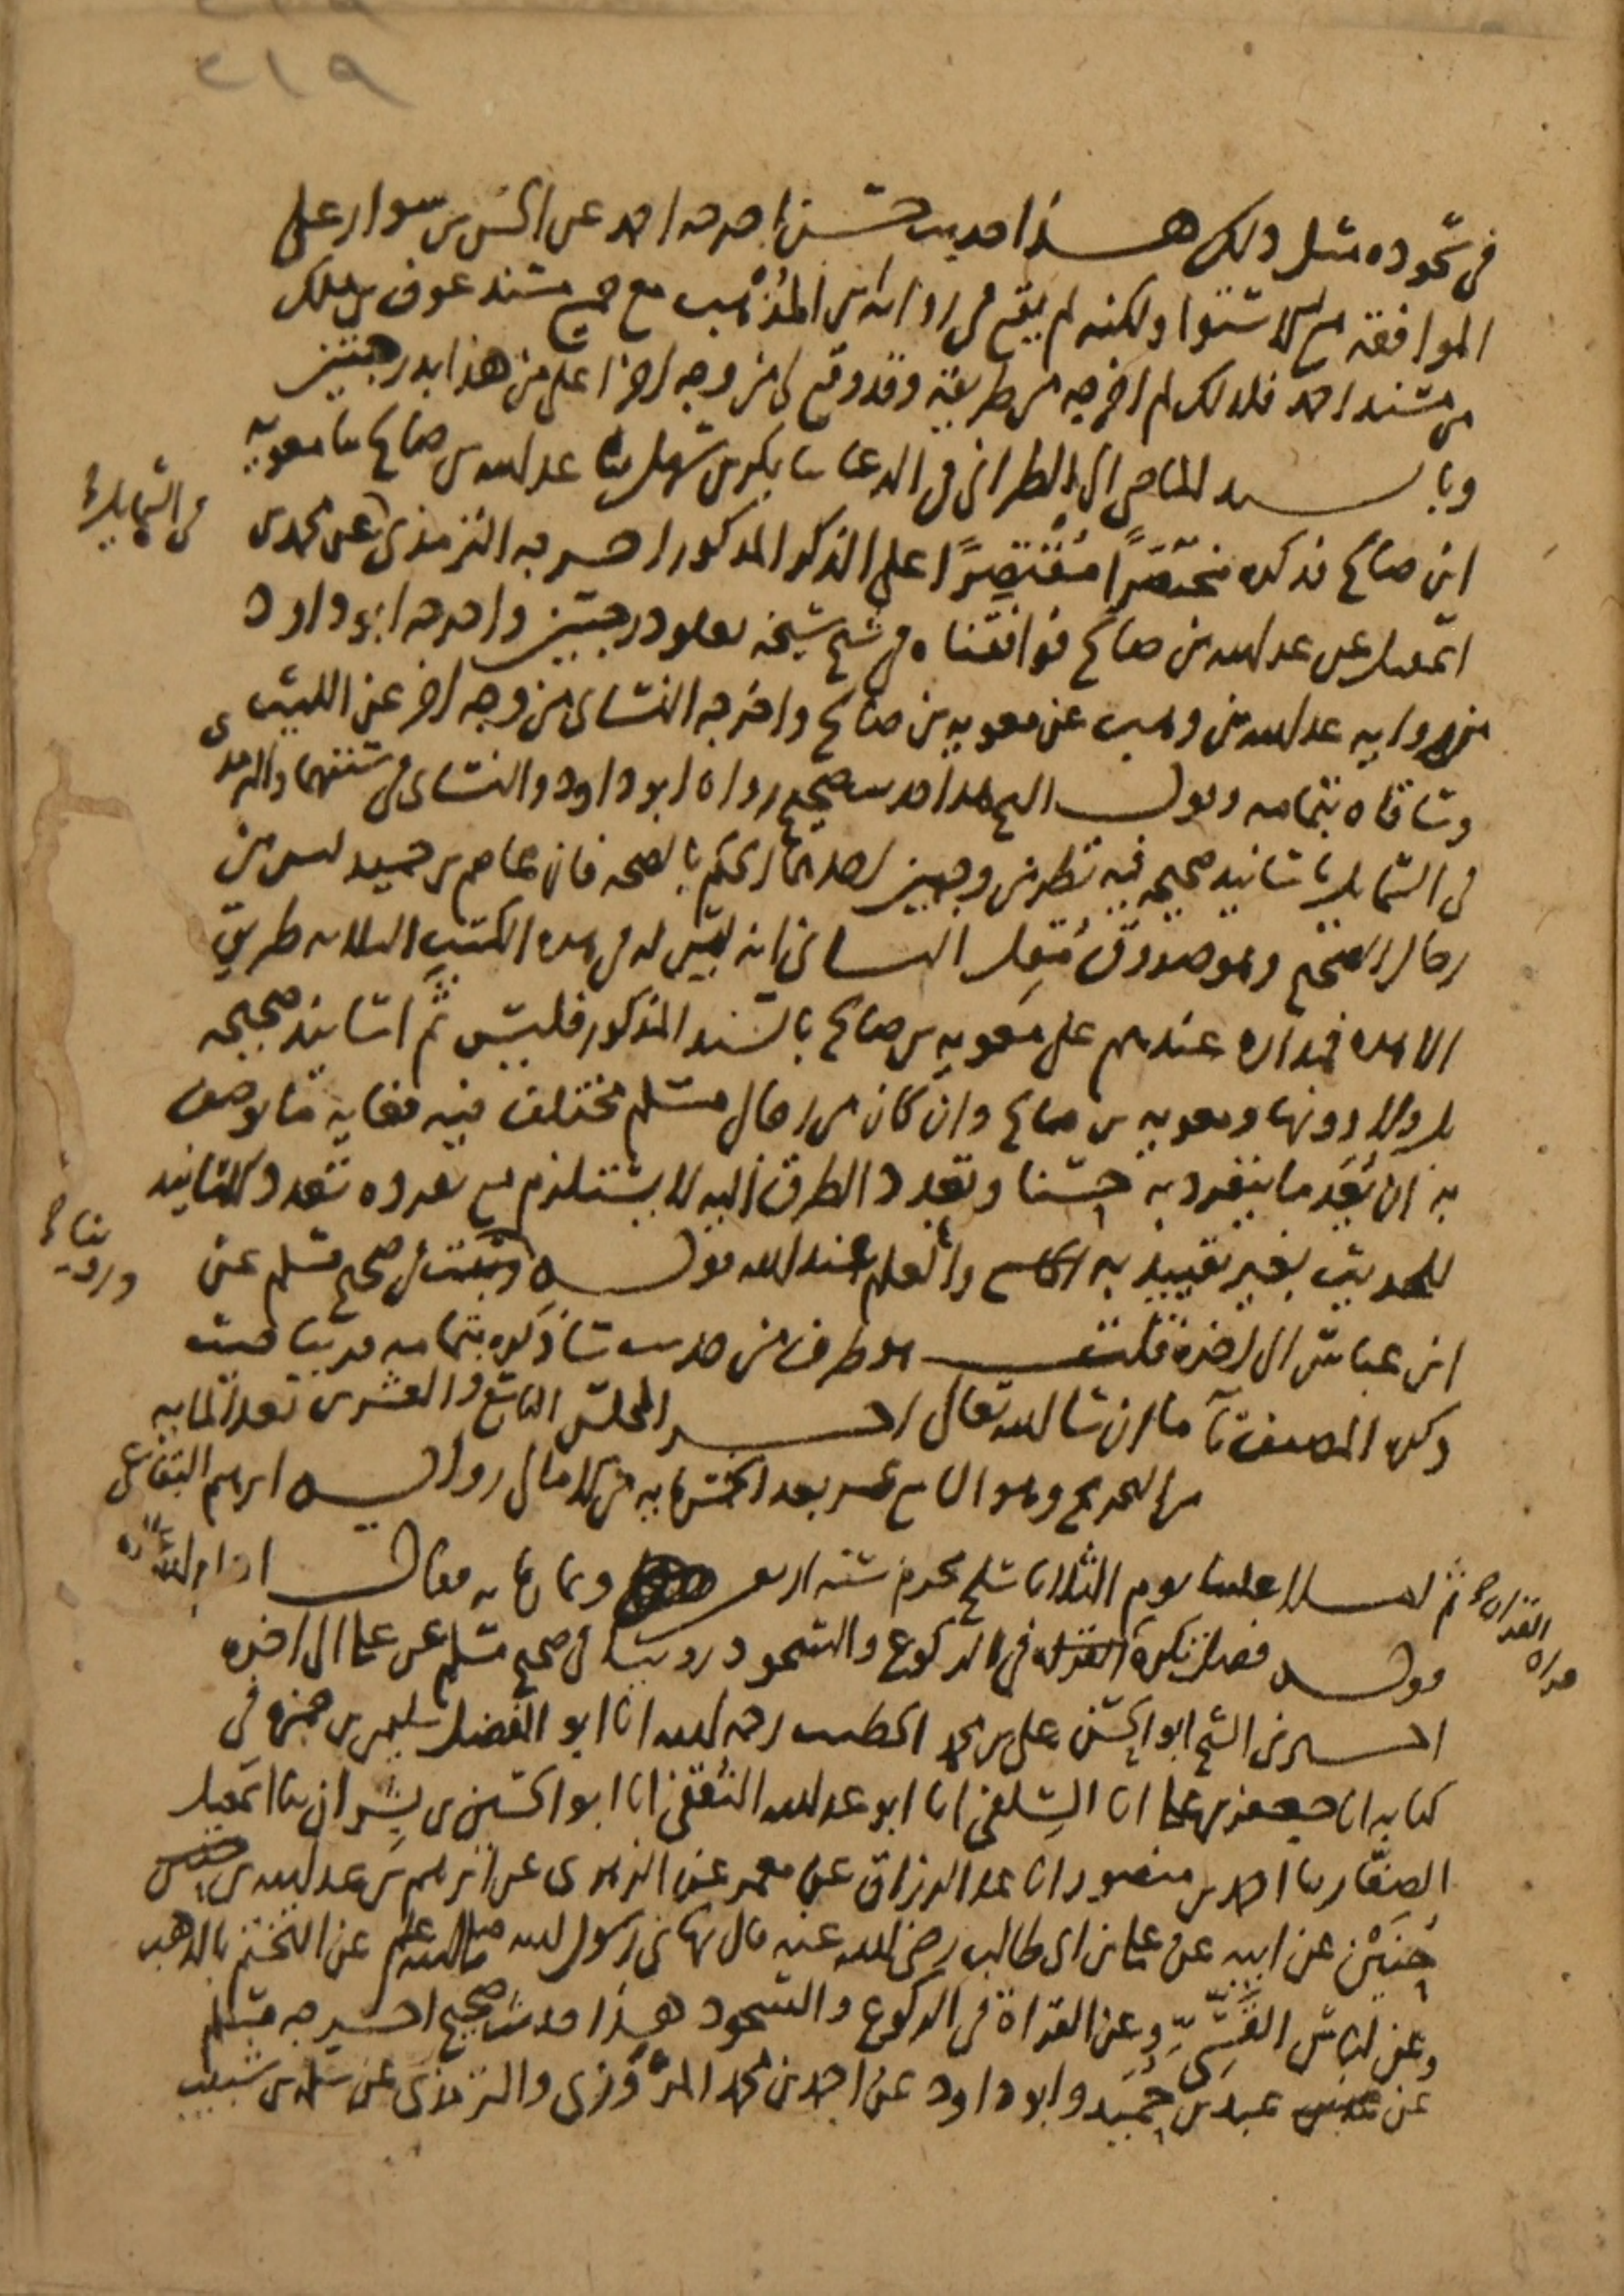 ٢١٩
في سجوده مثل ذلك هذا حديث حسن اخرجه احمد عن الحسن بن سوار على
الموافقة مع الاستواء ولكنه لم يقع في رواية ابن المذهب مع جميع مسند عوف بن ملك
من مسند احمد فلذلك لم اخرجه من طريقه وقد وقع لي من وجه اخر اعلى من هذا بدرجتين
وبالسند الماضي الى الطبراني في الدعا ثنا بكر بن سهل ثنا عبد الله بن صالح ثنا معويه
ابن صالح فذكره مختصرًا مقتصرًا على الذكر المذكور اخرجه الترمذي عن محمد بن
في الشمايل
اسمعيل عن عبد الله بن صالح فوافقناه في شيخ شيخه بعلو درجتين واخرجه ابو داود
من رواية عبد الله بن وهب عن معويه بن صالح واخرجه النسائي من وجه اخر عن الليث
وساقاه بتمامه وقول الشيخ هذا حديث صحيح رواه ابو داود والنسائي في سننهما والترمذي
في الشمايل باسانيد صحيحه فيه نظر من وجهين احدهما الحكم بالصحه فان عاصم بن حميد ليس من
رجال الصحيح وهو صدوق مقل الثاني انه ليس له في هذه الكتب الثلاثه طريق
الا هذه فمداره عندهم على معويه بن صالح بالسند المذكور فليس ثم اسانيد صحيحه
بل ولا دونها ومعويه بن صالح وان كان من رجال مسلم مختلف فيه فغايه ما يوصف
به ان يعد ما ينفرد به حسنا وتعدد الطرق اليه لا يستلزم مع تفرده تعدد الاسانيد
للحديث بغير تقييد به والعلم عند الله قوله وثبت في صحيح مسلم عن
وروينا
ابن عباس الى اخره قلت هو طرف من حديث ساذكره بتمامه قريبا حيث
ذكره المصنف تاما ان شا الله تعالى اخر المجلس التاسع والعشرين بعد المايه
من التخريج وهو التاسع عشر بعد الخمسمايه من الامالي رواية ابرهيم البقاعي
ثم املا علينا يوم الثلاثا سلخ محرم سنه اربعين وثمانمايه فقال ادام الله
قوله فصل تكره القراه في الركوع والسجود روينا في صحيح مسلم عن علي الى اخره
قراه القران
اخبرني الشيخ ابو الحسن علي بن محمد الخطيب رحمه الله انا ابو الفضل سليمن بن حمزه في
كتابه انا جعفر بن علي انا السلفي انا ابو عبد الله الثقفي انا ابو الحسين بن بشران ثنا اسمعيل
الصفار ثنا احمد بن منصور انا عبد الرزاق عن معمر عن الزهري عن ابرهيم بن عبد الله بن
حنين عن ابيه عن علي بن ابي طالب رضي الله عنه قال نهاني رسول الله صلى الله عليه عن التختم بالذهب
وعن لباس القسي وعن القراة في الركوع والسجود هذا حديث صحيح اخرجه مسلم
عن عبد بن حميد وابو داود عن احمد بن محمد المروزي والترمذي عن سلمه بن شبيب